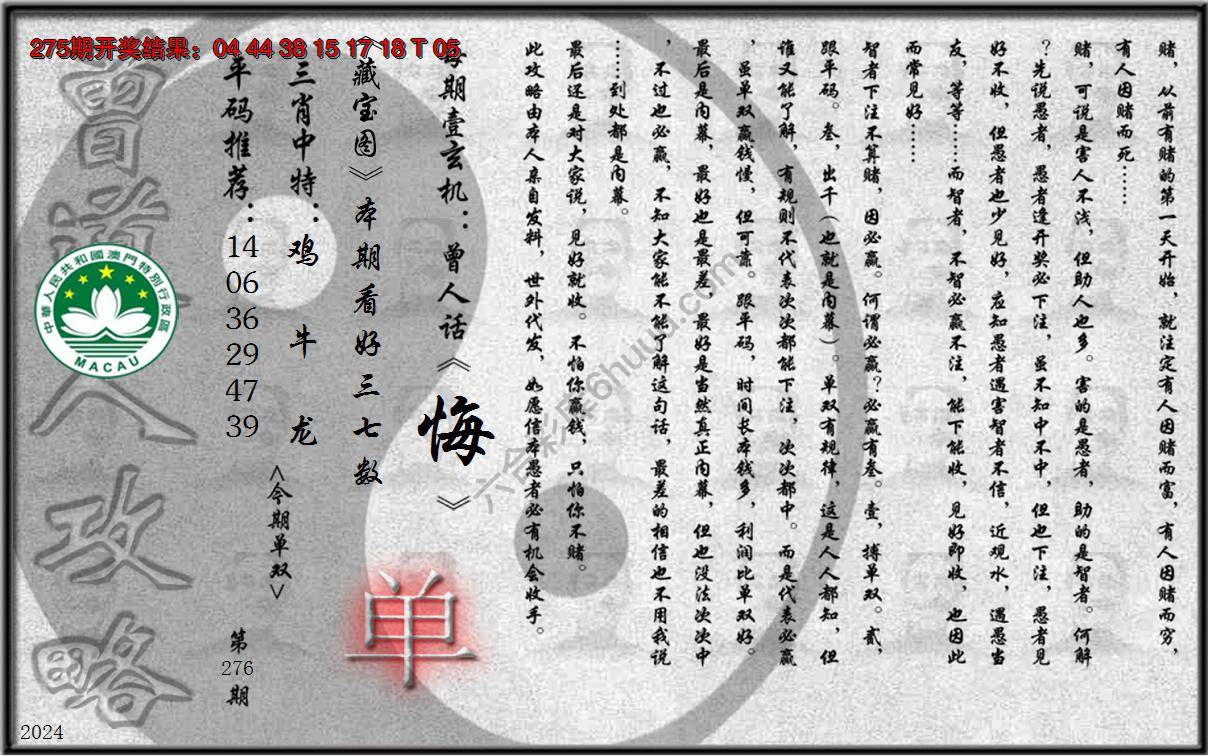 275期开奖结果：04 44 38 15 17 18 T 05
赌，从前有赌的第一天开始，就注定有人因赌而富，有人因赌而穷，
有人因赌而死……
赌，可说是害人不浅，但助人也多。害的是愚者，助的是智者。何解
？先说愚者，愚者逢开奖必下注，虽不知中不中，但也下注，愚者见
好不收，但愚者也少见好，应知愚者遇害智者不信，近观水，遇愚当
友，等等……而智者，不智必赢不注，能下能收，见好即收，也因此
而常见好……
智者下注不算赌，因必赢。何谓必赢？必赢有叁。壹，搏单双。贰，
跟平码。叁，出千（也就是内幕）。单双有规律，这是人人都知，但
谁又能了解，有规则不代表次次都能下注，次次都中。而是代表必赢
，虽单双赢钱慢，但可靠。跟平码，时间长本钱多，利润比单双好。
最后是内幕，最好也是最差，最好是当然真正内幕，但也没法次次中
，不过也必赢，不知大家能不能了解这句话，最差的相信也不用我说
……到处都是内幕。
最后还是对大家说，见好就收。不怕你赢钱，只怕你不赌。
此攻略由本人亲自发料，世外代发，如愿信本愚者必有机会收手。
每期壹玄机：曾人话《悔》
《藏宝图》本期看好三七数
三肖中特：鸡 牛 龙
平码推荐：14 06 36 29 47 39
<今期单双>
单
第276期
曾道人攻略
中華人民共和國澳門特別行政區
MACAU
六合彩库6huuu.com
2024